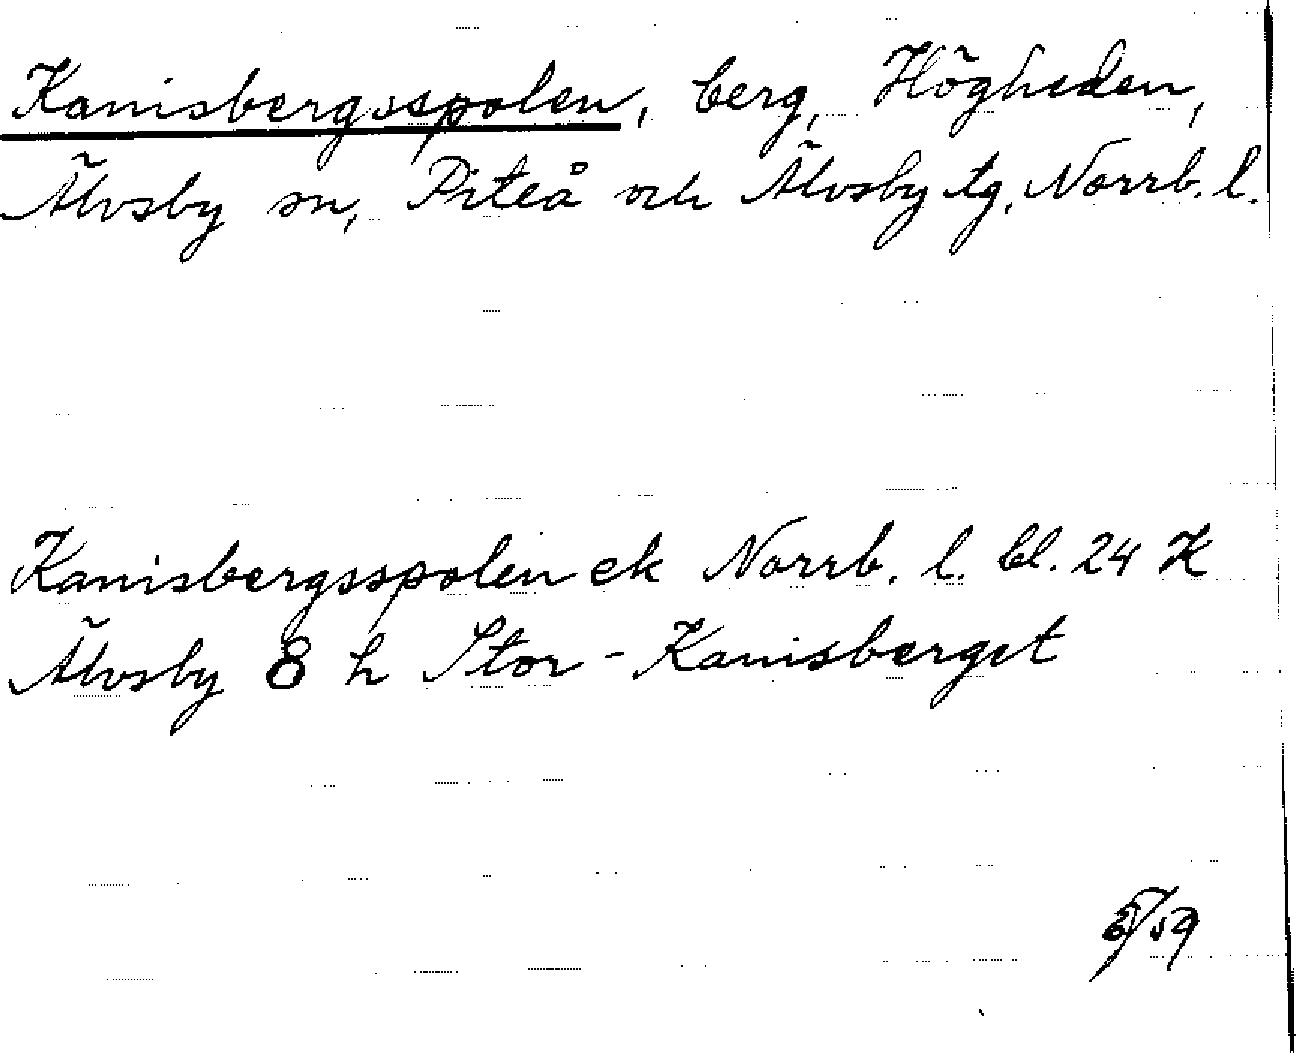 Kanisbergsspolen, berg, Högheden,
Älvsby sn, Piteå och Älvsby tg, Norrb. l.
Kanisbergsspolen ek Norrb. l. bl. 24 K
Älvsby 8 h Stor-Kanisberget